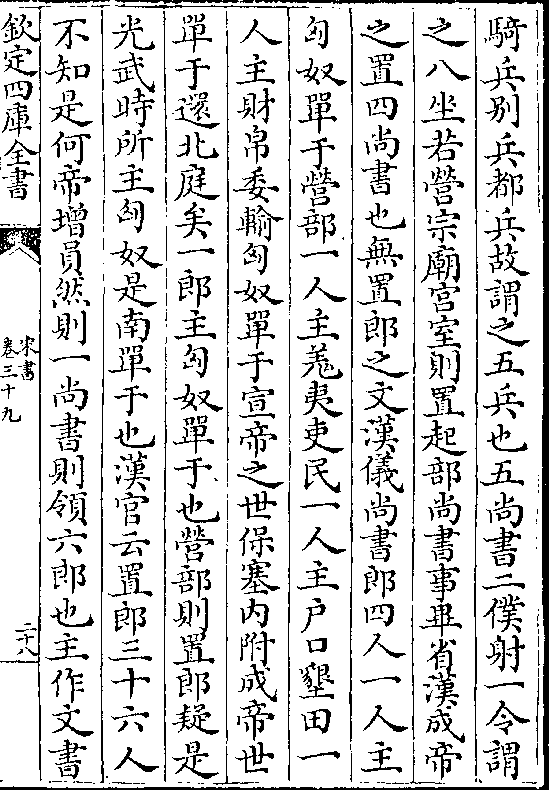 騎兵别兵都兵故謂之五兵也五尚書二僕射一令謂
之八坐若營宗廟宫室則置起部尚書事畢省漢成帝
之置四尚書也無置郎之文漢儀尚書郎四人一人主
匈奴單于營部一人主羗夷吏民一人主户口墾田一
人主財帛委輸匈奴單于宣帝之世保塞内附成帝世
單于還北庭矣一郎主匈奴單于也營部則置郎疑是
光武時所主匈奴是南單于也漢官云置郎三十六人
不知是何帝增員然則一尚書則領六郎也主作文書
欽定四庫全書
宋書
卷三十九
二十八